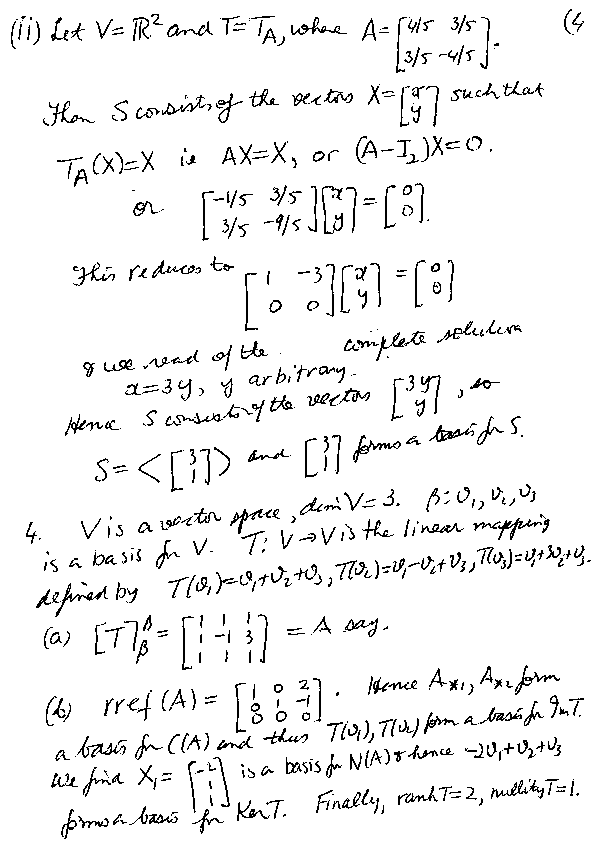 (ii) Let V = ℝ² and T = T_A, where A = [4/5 3/5; 3/5 -4/5]. (4
Then S consists of the vectors X = [x; y] such that
T_A(X) = X ie AX = X, or (A - I₂)X = 0.
or [-1/5 3/5; 3/5 -9/5][x; y] = [0; 0].
This reduces to [1 -3; 0 0][x; y] = [0; 0]
& we read of the complete solution
x = 3y, y arbitrary.
Hence S consists of the vectors [3y; y], so
S = <[3; 1]> and [3; 1] forms a basis for S.
4. V is a vector space, dim V = 3. β: v₁, v₂, v₃
is a basis for V. T: V → V is the linear mapping
defined by T(v₁) = v₁+v₂+v₃, T(v₂) = v₁-v₂+v₃, T(v₃) = v₁+3v₂+v₃.
(a) [T]_β^β = [1 1 1; 1 -1 3; 1 1 1] = A say.
(b) rref(A) = [1 0 2; 0 1 -1; 0 0 0]. Hence A_{*1}, A_{*2} form
a basis for C(A) and thus T(v₁), T(v₂) form a basis for Im T.
We find X₁ = [-2; 1; 1] is a basis for N(A) & hence -2v₁+v₂+v₃
forms a basis for Ker T. Finally, rank T = 2, nullity T = 1.